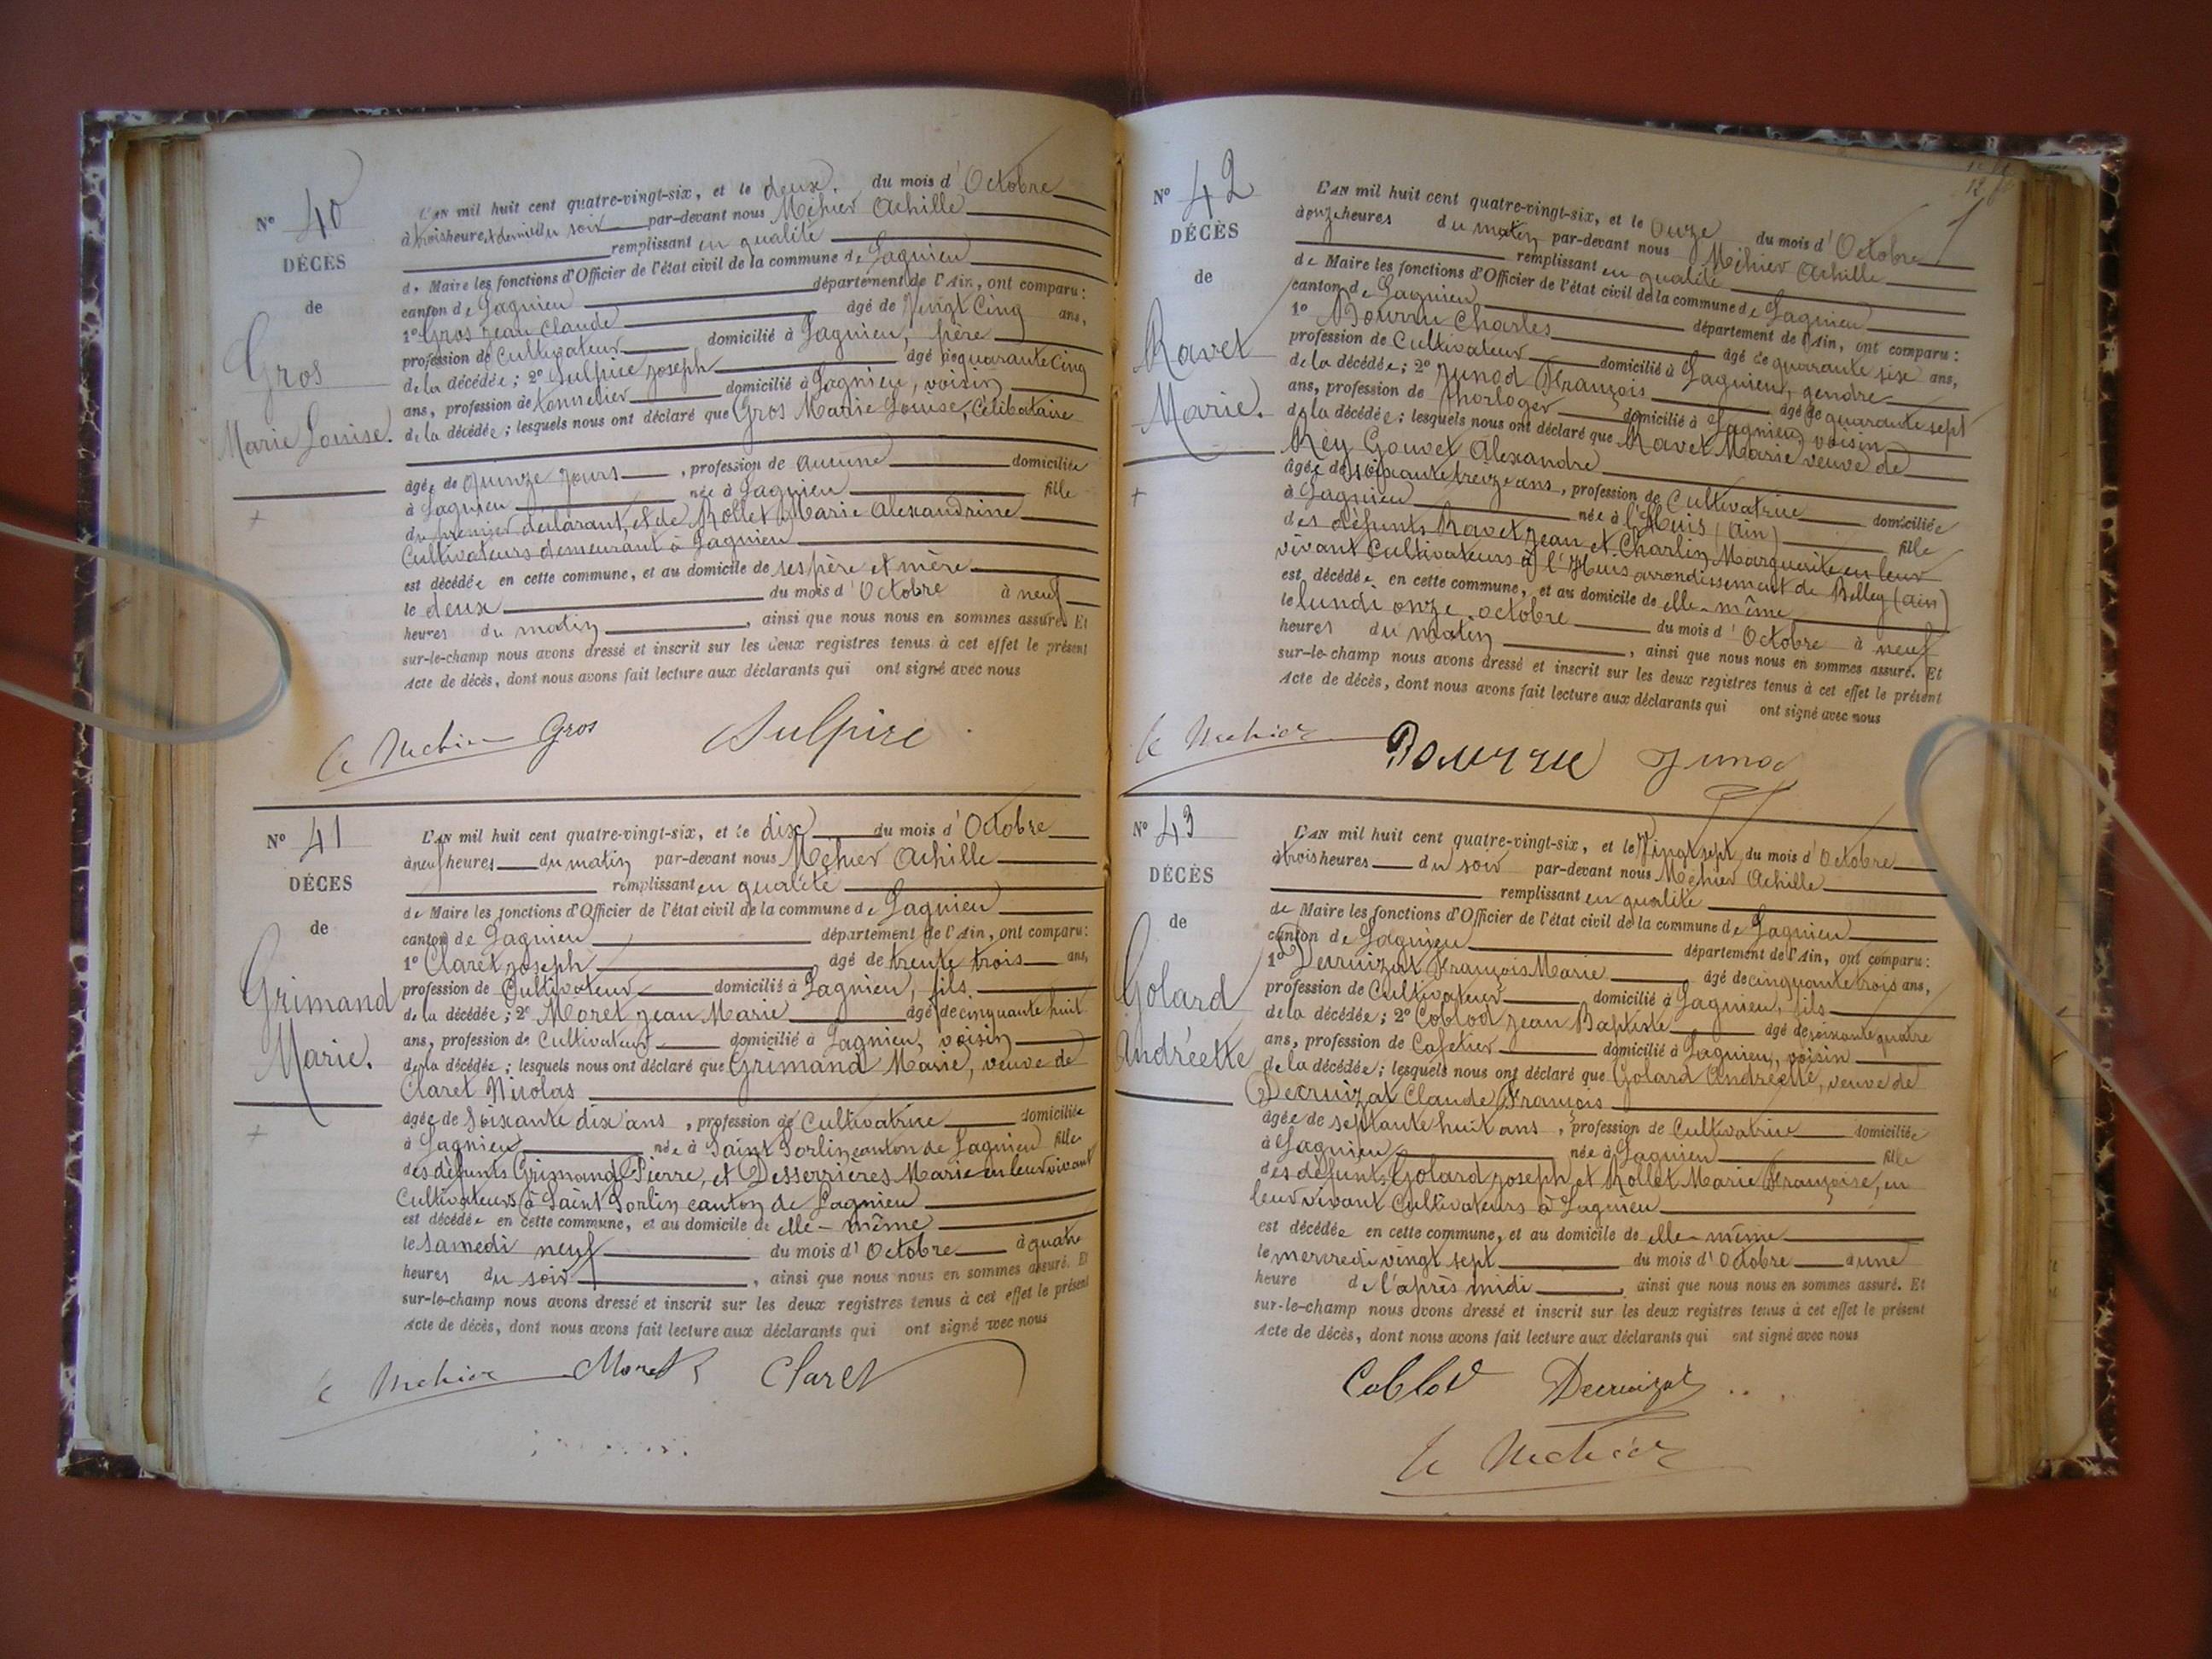 N° 40
DÉCÈS
de
Gros
Marie Louise.
L'AN mil huit cent quatre-vingt-six, et le deux, du mois d'Octobre
à trois heures et demie du soir par-devant nous Méhier Achille
remplissant en qualité
de Maire les fonctions d'Officier de l'état civil de la commune de Lagnieu
canton de Lagnieu département de l'Ain, ont comparu :
1° Gros Jean Claude âgé de Vingt Cinq ans,
profession de Cultivateur domicilié à Lagnieu, père
de la décédée ; 2° Sulpice Joseph âgé de quarante Cinq
ans, profession de tonnelier domicilié à Lagnieu, voisin
de la décédée ; lesquels nous ont déclaré que Gros Marie Louise, Célibataire
âgée de Quinze jours, profession de Aucune domiciliée
à Lagnieu née à Lagnieu fille
du premier déclarant, et de Rollet Marie Alexandrine
Cultivateurs demeurant à Lagnieu
est décédée en cette commune, et au domicile de ses père et mère
le deux du mois d'Octobre à neuf
heures du matin, ainsi que nous nous en sommes assuré. Et
sur-le-champ nous avons dressé et inscrit sur les deux registres tenus à cet effet le présent
Acte de décès, dont nous avons fait lecture aux déclarants qui ont signé avec nous
Gros Sulpice
N° 41
DÉCES
de
Grimand
Marie.
L'AN mil huit cent quatre-vingt-six, et le dix du mois d'Octobre
à neuf heures du matin par-devant nous Méhier Achille
remplissant en qualité
de Maire les fonctions d'Officier de l'état civil de la commune de Lagnieu
canton de Lagnieu département de l'Ain, ont comparu :
1° Claret Joseph âgé de trente trois ans,
profession de Cultivateur domicilié à Lagnieu, fils
de la décédée ; 2° Moret Jean Marie âgé de cinquante huit
ans, profession de Cultivateur domicilié à Lagnieu, voisin
de la décédée ; lesquels nous ont déclaré que Grimand Marie, veuve de
Claret Nicolas
âgée de Soixante dix ans, profession de Cultivatrice domiciliée
à Lagnieu née à Saint Sorlin canton de Lagnieu fille
des défunts Grimand Pierre, et Desserrières Marie en leur vivant
Cultivateurs à Saint Sorlin canton de Lagnieu
est décédée en cette commune, et au domicile de elle-même
le Samedi neuf du mois d'Octobre à quatre
heures du soir, ainsi que nous nous en sommes assuré. Et
sur-le-champ nous avons dressé et inscrit sur les deux registres tenus à cet effet le présent
Acte de décès, dont nous avons fait lecture aux déclarants qui ont signé avec nous
Moret Claret
N° 42
DÉCÈS
de
Ravet
Marie.
L'AN mil huit cent quatre-vingt-six, et le Onze du mois d'Octobre
à onze heures du matin par-devant nous Méhier Achille
remplissant en qualité
de Maire les fonctions d'Officier de l'état civil de la commune de Lagnieu
canton de Lagnieu département de l'Ain, ont comparu :
1° Bourru Charles âgé de quarante six ans,
profession de Cultivateur domicilié à Lagnieu, gendre
de la décédée ; 2° Junod François âgé de quarante sept
ans, profession de horloger domicilié à Lagnieu voisin
de la décédée ; lesquels nous ont déclaré que Ravet Marie veuve de
Rey Gouvet Alexandre
âgée de soixante treize ans, profession de Cultivatrice domiciliée
à Lagnieu née à l'Huis (Ain) fille
des défunts Ravet Jean et Charlin Marguerite en leur
vivant Cultivateurs à l'Huis arrondissement de Belley (Ain)
est décédée en cette commune, et au domicile de elle-même
le lundi onze octobre du mois d'Octobre à neuf
heures du matin, ainsi que nous nous en sommes assuré. Et
sur-le-champ nous avons dressé et inscrit sur les deux registres tenus à cet effet le présent
Acte de décès, dont nous avons fait lecture aux déclarants qui ont signé avec nous
Junod
N° 43
DÉCÈS
de
Golard
Andréette
L'AN mil huit cent quatre-vingt-six, et le Vingt sept du mois d'Octobre
à trois heures du soir par-devant nous Méhier Achille
remplissant en qualité
de Maire les fonctions d'Officier de l'état civil de la commune de Lagnieu
canton de Lagnieu département de l'Ain, ont comparu :
1° Decruizat François Marie âgé de cinquante trois ans,
profession de Cultivateur domicilié à Lagnieu, fils
de la décédée ; 2° Coblod Jean Baptiste âgé de soixante quatre
ans, profession de Cafetier domicilié à Lagnieu, voisin
de la décédée ; lesquels nous ont déclaré que Golard Andréette, veuve de
Decruizat Claude François
âgée de septante huit ans, profession de Cultivatrice domiciliée
à Lagnieu née à Lagnieu fille
des défunts Golard Joseph et Rollet Marie Françoise, en
leur vivant Cultivateurs à Lagnieu
est décédée en cette commune, et au domicile de elle-même
le mercredi vingt sept du mois d'Octobre à une
heure de l'après midi, ainsi que nous nous en sommes assuré. Et
sur-le-champ nous avons dressé et inscrit sur les deux registres tenus à cet effet le présent
Acte de décès, dont nous avons fait lecture aux déclarants qui ont signé avec nous
Coblod Decruizat